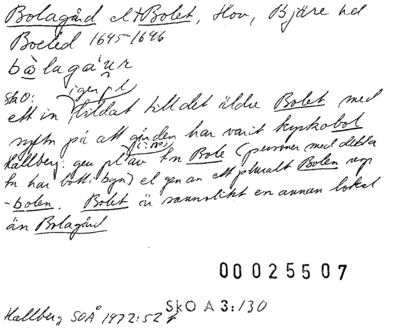 Bolagård el+ Bolet, Hov, Bjäre hd
Boeled 1645-1646
bòlagá'ur
igen pl
SkO: ett in bildat till det äldre Bolet med
syftn på att gården har varit kyrkobol
Hallberg: gen pl av tn Bole (personer med detta
tn har bott i byn) el gen an ett pluralt Bolen resp
-bolen. Bolet är sannolikt en annan lokal
än Bolagård
00025507
Hallberg SOÅ 1972:52 f
SkO A 3:130